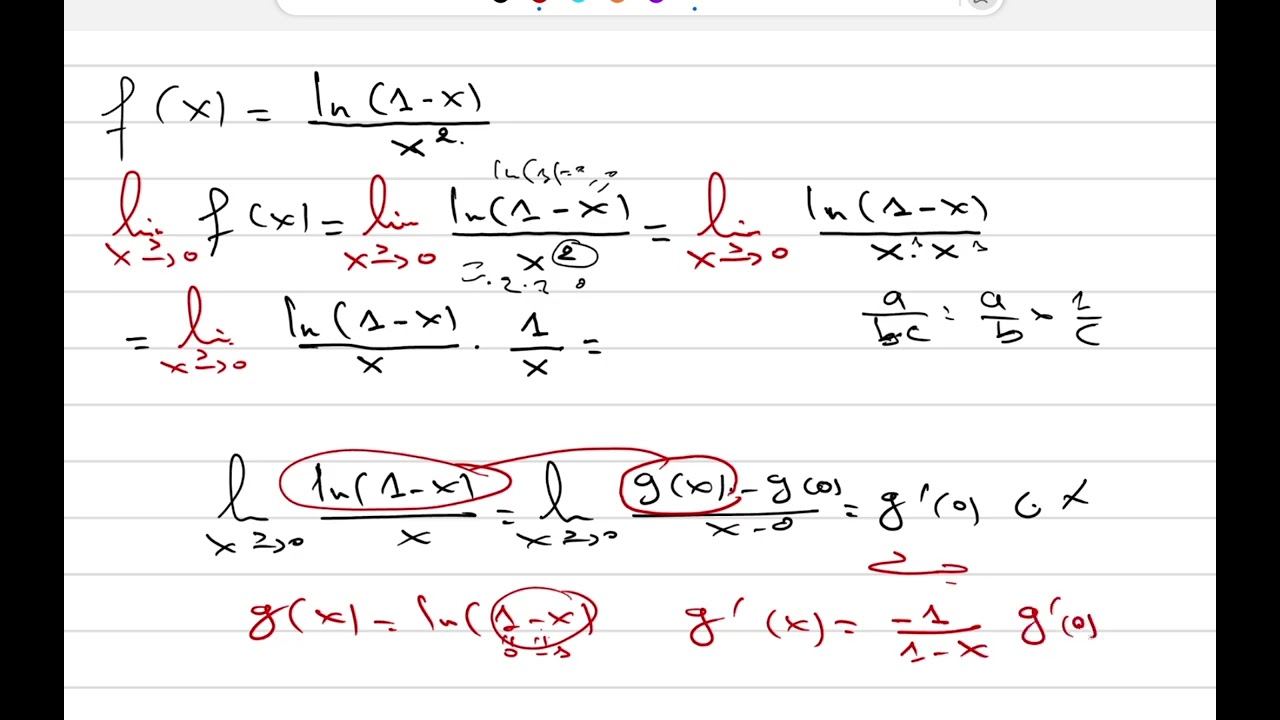 f(x) = ln(1-x) / x²
ln(1)=
lim x→>0 f(x) = lim x→>0 ln(1-x) / x² = lim x→>0 ln(1-x) / x¹·x¹
= lim x→>0 ln(1-x) / x · 1 / x =
a / bc = a / b × 1 / c
l x→>0 ln(1-x) / x = l x→>0 g(x) - g(0) / x-0 = g'(0)
g(x) = ln(1-x) g'(x) = -1 / 1-x g'(0)
0 -1